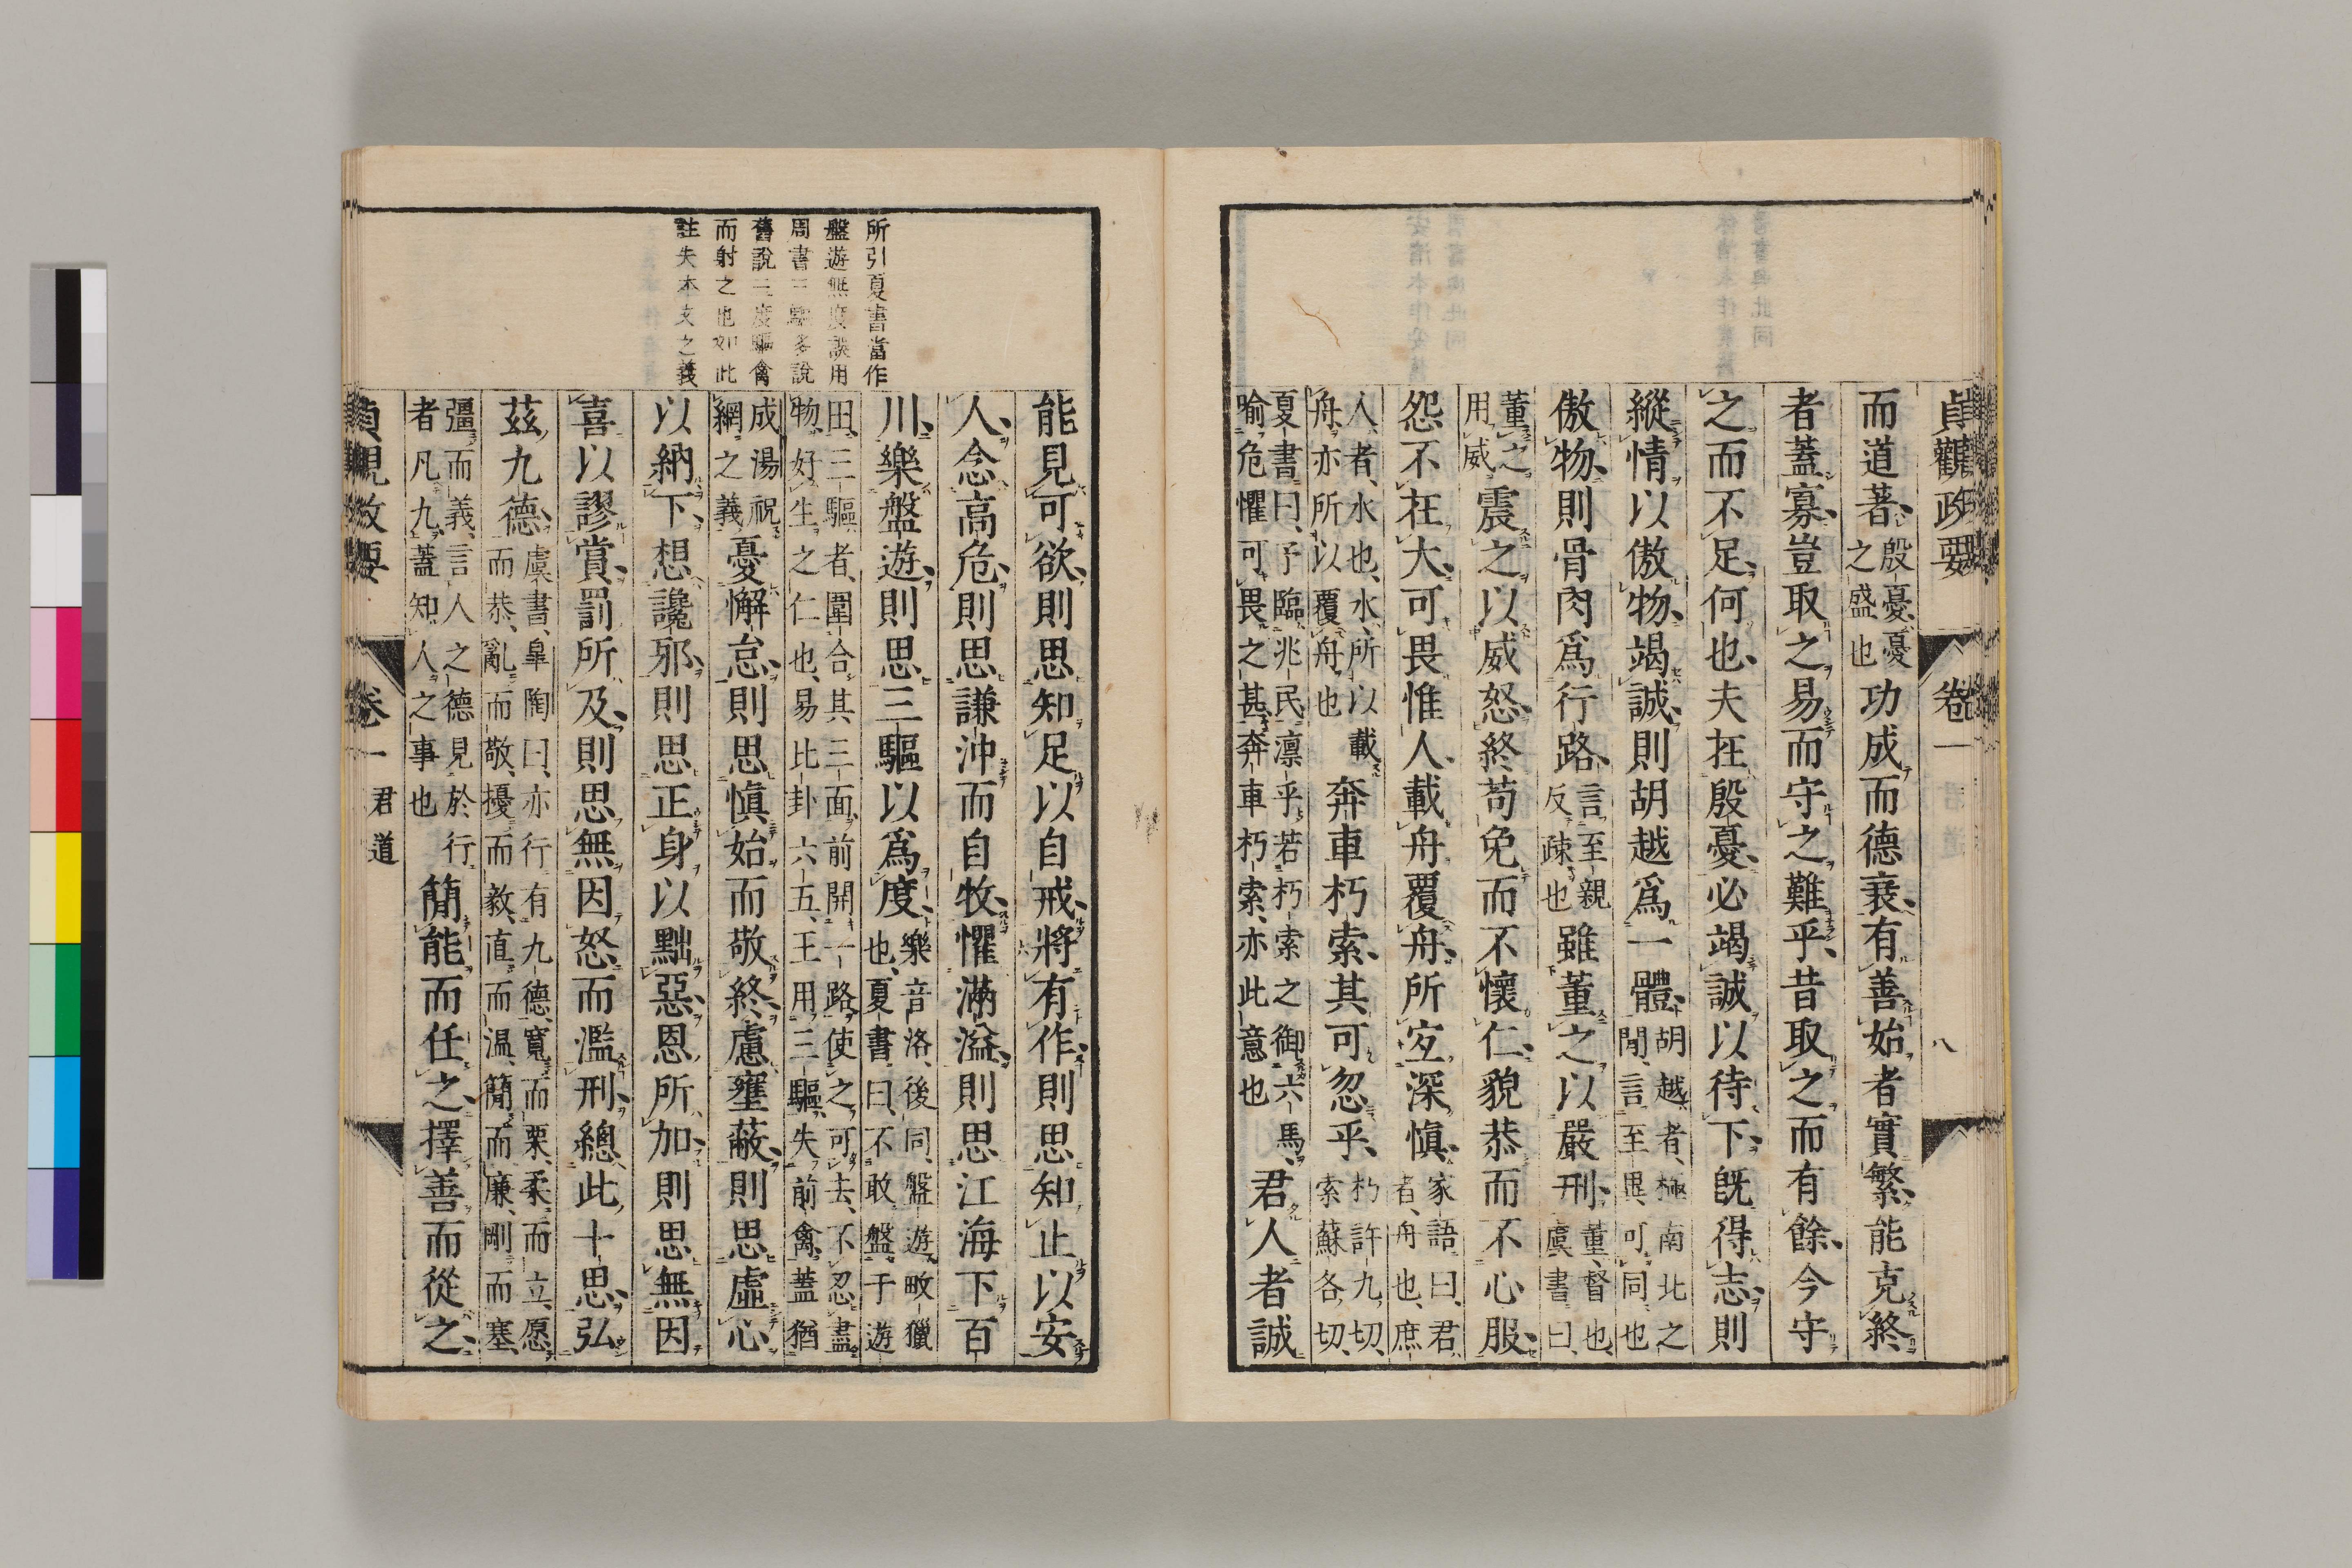 貞觀政要 卷一 八
而道著殷憂憂之盛也功成而德衰有善始者實繁能克終
者蓋寡豈取之易而守之難乎昔取之而有餘今守
之而不足何也夫在殷憂必竭誠以待下既得志則
縱情以傲物竭誠則胡越爲一體胡越者極南北之間言至異可同也
傲物則骨肉爲行路言至親反疎也雖董之以嚴刑董督也虞書曰
董之用威震之以威怒終苟免而不懷仁貌恭而不心服
怨不在大可畏惟人載舟覆舟所宜深慎家語曰君者舟也庶
人者水也水所以載舟亦所以覆舟也奔車朽索其可忽乎朽許九切索蘇各切
夏書曰予臨兆民凛乎若朽索之御六馬喻危懼可畏之甚奔車朽索亦此意也君人者誠
所引夏書當作
盤遊無度誤用
周書三驅多說
舊說三度驅禽
而射之也如此
註失本文之義
能見可欲則思知足以自戒將有作則思知止以安
人念高危則思謙沖而自牧懼滿溢則思江海下百
川樂盤遊則思三驅以爲度樂音洛後同盤遊畋獵也夏書曰不敢盤于遊
田三驅者圍合其三面前開一路使之可去不忍盡物好生之仁也易比卦六五王用三驅失前禽蓋猶
成湯祝網之義憂懈怠則思慎始而敬終慮壅蔽則思虛心
以納下想讒邪則思正身以黜惡恩所加則思無因
喜以謬賞罰所及則思無因怒而濫刑總此十思弘
茲九德虞書皐陶曰亦行有九德寬而栗柔而立愿而恭亂而敬擾而毅直而温簡而廉剛而塞
彊而義言人之德見於行者凡九蓋知人之事也簡能而任之擇善而從之
貞觀政要 卷一 君道